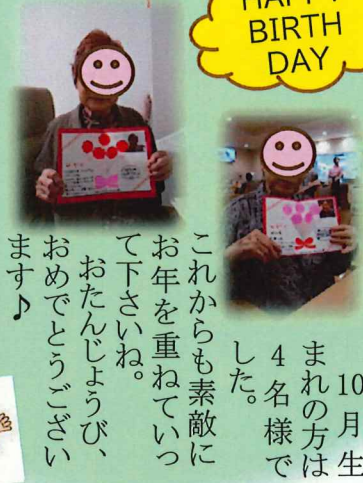 BIRTH
DAY
10月生
まれの方は
4名様で
した。
これからも素敵に
お年を重ねていっ
て下さいね。
おたんじょうび、
おめでとうござい
ます♪